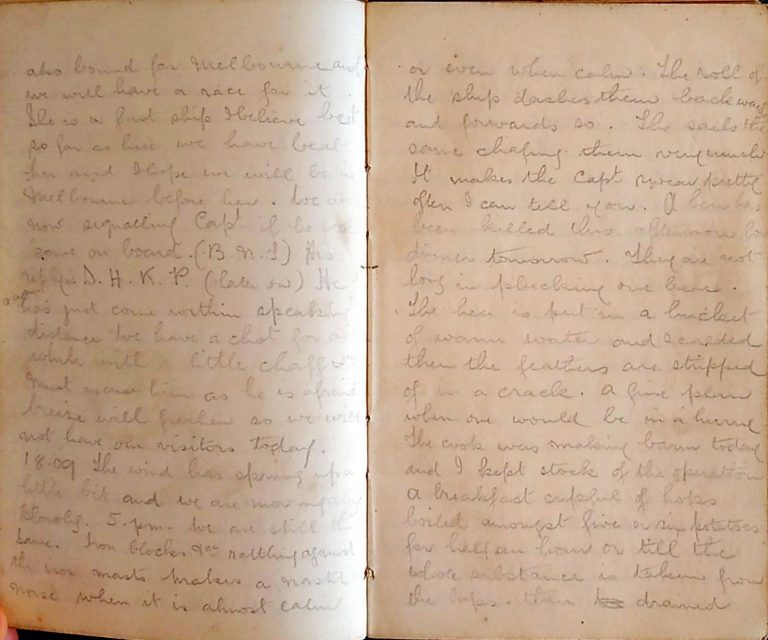 also bound for Melbourne and
we will have a race for it.
She is a fast ship I believe but
so far as here we have beat
her and I hope we will be in
Melbourne before her. We are
now signalling Capt if he will
come on board. (B.N.S) His
reply is D.H.K.P. (later on) He
has just come within speaking
distance We have a chat for a
while with a little chaff &c
must excuse him as he is afraid
breeze will freshen so we will
not have our visitors today.
18.09 The wind has sprung up a
little bit and we are moving along
slowly. 5. pm. We are still the
same. Iron blocks &c rattling against
the iron masts makes a nasty
noise when it is almost calm
or even when calm. The roll of
the ship dashes them backwards
and forwards so. The sails the
same chafing them very much
It makes the Capt swear pretty
often I can tell you. A hen has
been killed this afternoon for
dinner tomorrow. They are not
long in plucking one here.
The hen is put in a bucket
of warm water and scalded
then the feathers are stripped
of in a crack. A fine plan
when one would be in a hurry
The cook was making barm today
and I kept stock of the operation
a breakfast cupful of hops
boiled amongst five or six potatoes
for half an hour or till the
whole substance is taken from
the hops. then drained